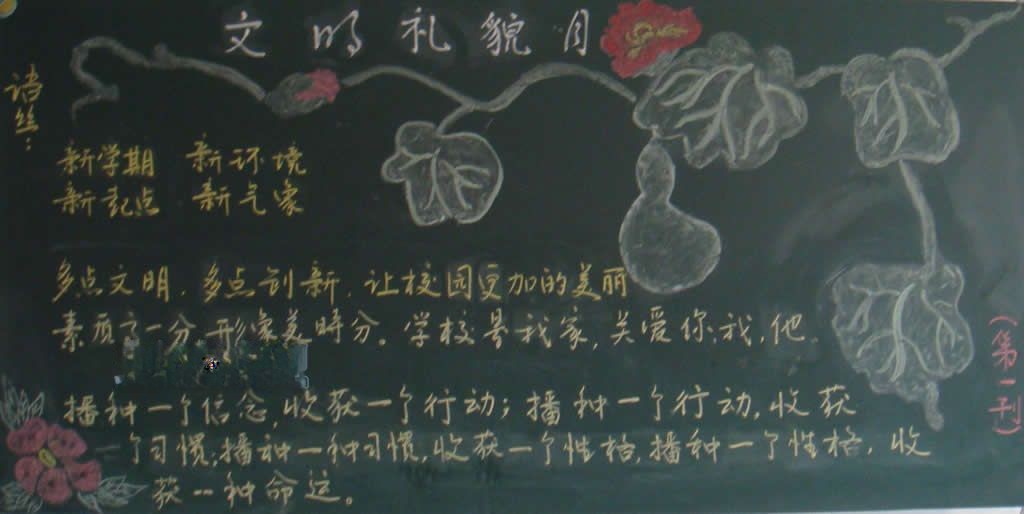 文明礼貌月
诗丝：
新学期 新环境
新起点 新气象
多点文明，多点创新，让校园更加的美丽
素质高一分，形象美時分。学校是我家，关爱你，我，他。
播种一个信念，收获一个行动；播种一个行动，收获
一个习惯；播种一种习惯，收获一个性格，播种一个性格，收
获一种命运。
（第一刊）